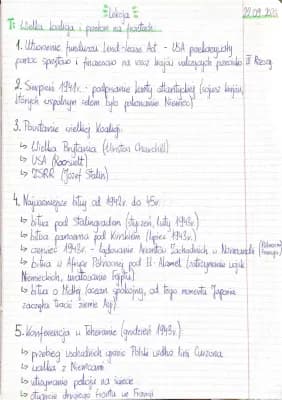 Lekcja
22.09.202
T: Wielka koalicja i przełom na frontach.
1. Utworzenie funduszu Lend-lease Act - USA przekazywały
pomoc sprzętową i finansową na rzecz krajów walczących przeciwko III Rzeszy
2. Sierpień 1941r. - podpisanie karty atlantyckiej (sojusz krajów,
których wspólnym celem było pokonanie Niemiec)
3. Powstanie wielkiej koalicji:
↳ Wielka Brytania (Winston Churchill)
↳ USA (Roosvelt)
↳ ZSRR (Józef Stalin)
4. Najważniejsze bitwy od 1942r. do 45r.
↳ bitwa pod Stalingradem (styczeń, luty 1943r.)
↳ bitwa pancerna pod Kurskiem (lipiec 1943r.)
↳ czerwiec 1943r. - lądowanie Aliantów Zachodnich w Normandii (Północna Francja)
↳ bitwa w Afryce Północnej pod El-Alamel (zatrzymanie wojsk
Niemieckich, uratowanie Egiptu)
↳ bitwa o Midway (ocean spokojny, od tego momentu Japonia
zaczęła tracić ziemie Azji)
5. Konferencja w Teheranie (grudzień 1943r.)
↳ przebieg wschodnich granic Polski wzdłuż linii Curzona
↳ walka z Niemcami
↳ utrzymanie pokoju na świecie
↳ otwarcie drugiego frontu we Francji